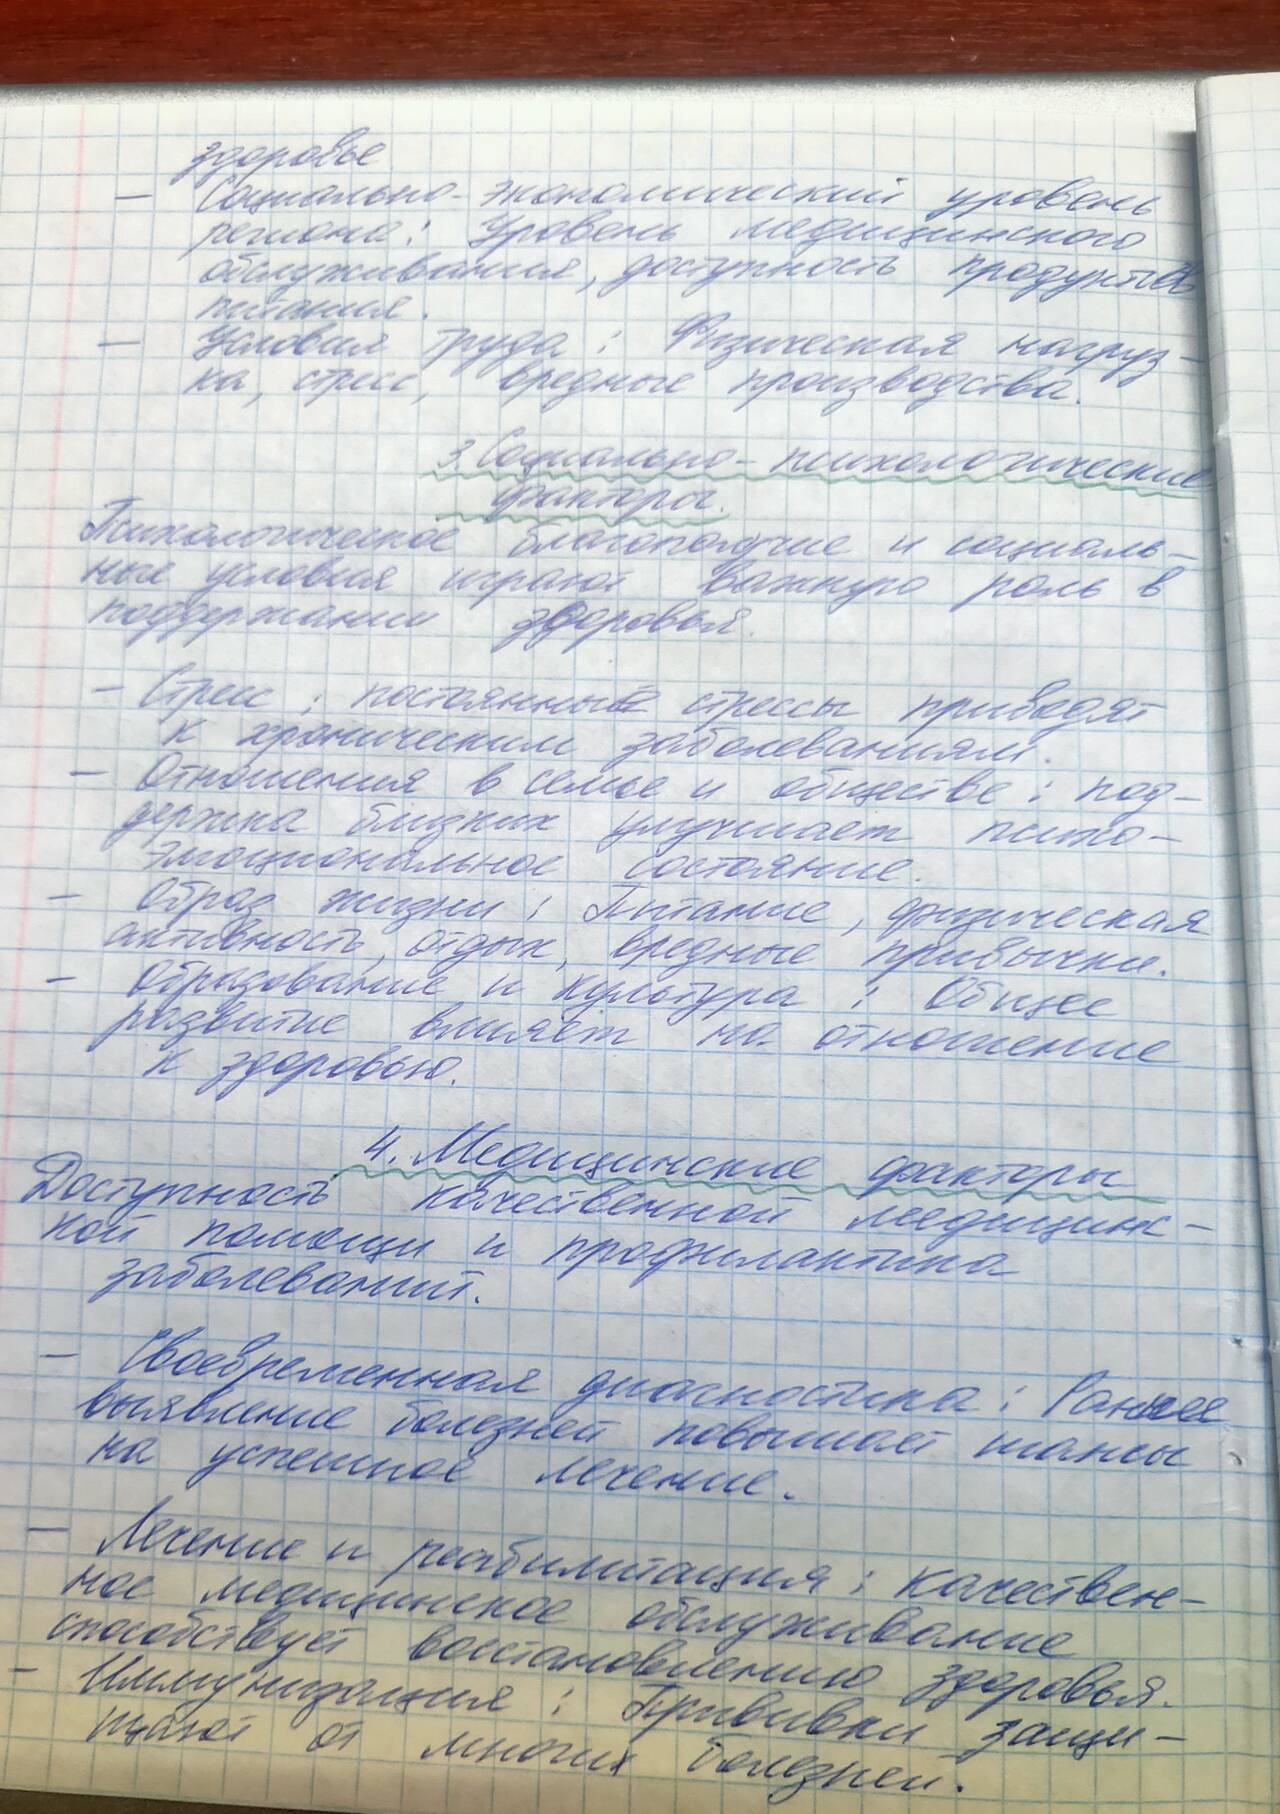 здоровье
— Социально-экономический уровень
региона: Уровень медицинского
обслуживания, доступность продуктов
питания.
— Условия труда: Физическая нагруз-
ка, стресс, вредные производства.
3. Социально-психологические
факторы.
Психологическое благополучие и социаль-
ные условия играют важную роль в
поддержании здоровья.
- Стресс: постоянные стрессы приводят
к хроническим заболеваниям.
- Отношения в семье и обществе: под-
держка близких улучшает психо-
эмоциональное состояние.
- Образ жизни: Питание, физическая
активность, отдых, вредные привычки.
- Образование и культура: Общее
развитие влияет на отношение
к здоровью.
4. Медицинские факторы
Доступность качественной медицинс-
кой помощи и профилактика
заболеваний.
- Своевременная диагностика: Раннее
выявление болезней повышает шансы
на успешное лечение.
- Лечение и реабилитация: качествен-
ное медицинское обслуживание
способствует восстановлению здоровья.
- Иммунизация: Прививки защи-
щают от многих болезней.